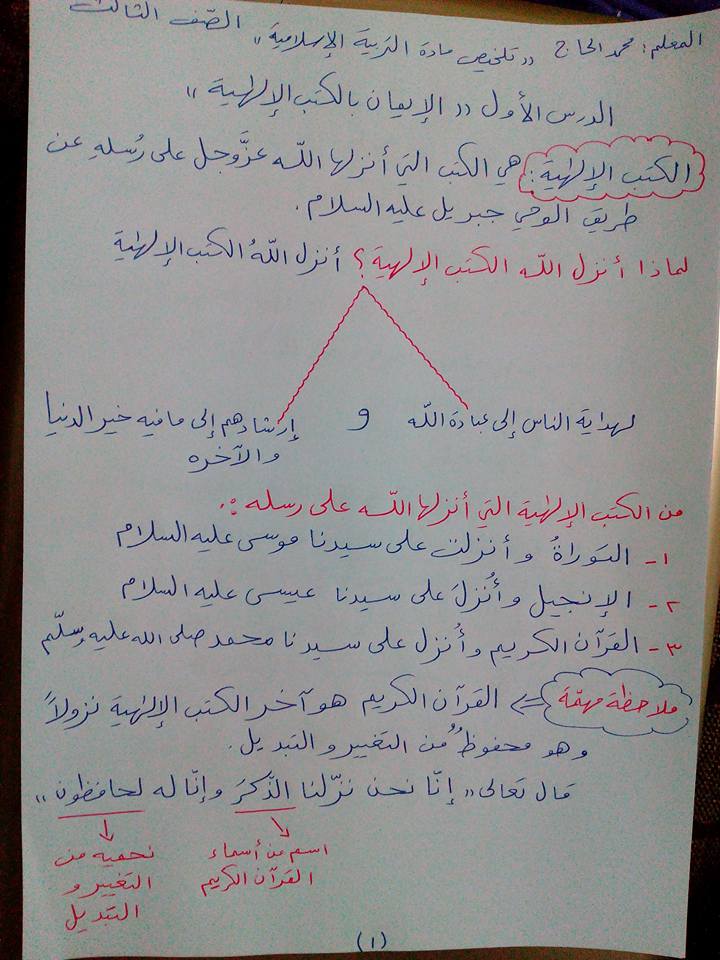 المعلم: محمد الحاج "تلخيص مادة التربية الإسلامية" الصّف الثالث
الدرس الأول "الإيمان بالكتب الإلهية"
الكتب الإلهية: هي الكتب التي أنزلها اللّه عزَّوجل على رُسلهِ عن
طريق الوحي جبريل عليه السلام.
لماذا أنزل اللّه الكتب الإلهية؟ أنزل اللّهُ الكتب الإلهية
لهداية الناس إلى عبادة اللّه و إرشادهم إلى ما فيه خير الدنيا
والآخره
من الكتب الإلهية التي أنزلها اللّه على رسله :.
١- التوراةُ وأنزلت على سيدنا موسى عليه السلام
٢- الإنجيل وأُنزلَ على سيدنا عيسى عليه السلام
٣- القرآن الكريم وأُنزل على سيدنا محمد صلى الله عليه وسلّم
ملاحظة مهمّة <= القرآن الكريم هو آخر الكتب الإلهية نزولاً
وهو محفوظٌ من التغيير و التبديل.
قال تعالى "إنّا نحن نزّلنا الذّكرَ وإنّا له لحافظون"
اسم من أسماء
القرآن الكريم
نحميه من
التغيير و
التبديل
(١)